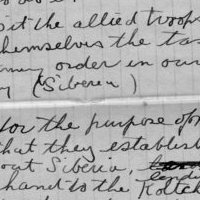 sit the allied troops
themselves the tas
order in our
(Siberia)
for the purpose of
that they establis
out Siberia,
hand to the Koltch